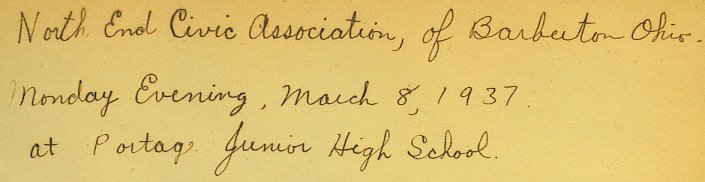 North End Civic Association, of Barberton Ohio.
Monday Evening, March 8, 1937.
at Portage Junior High School.